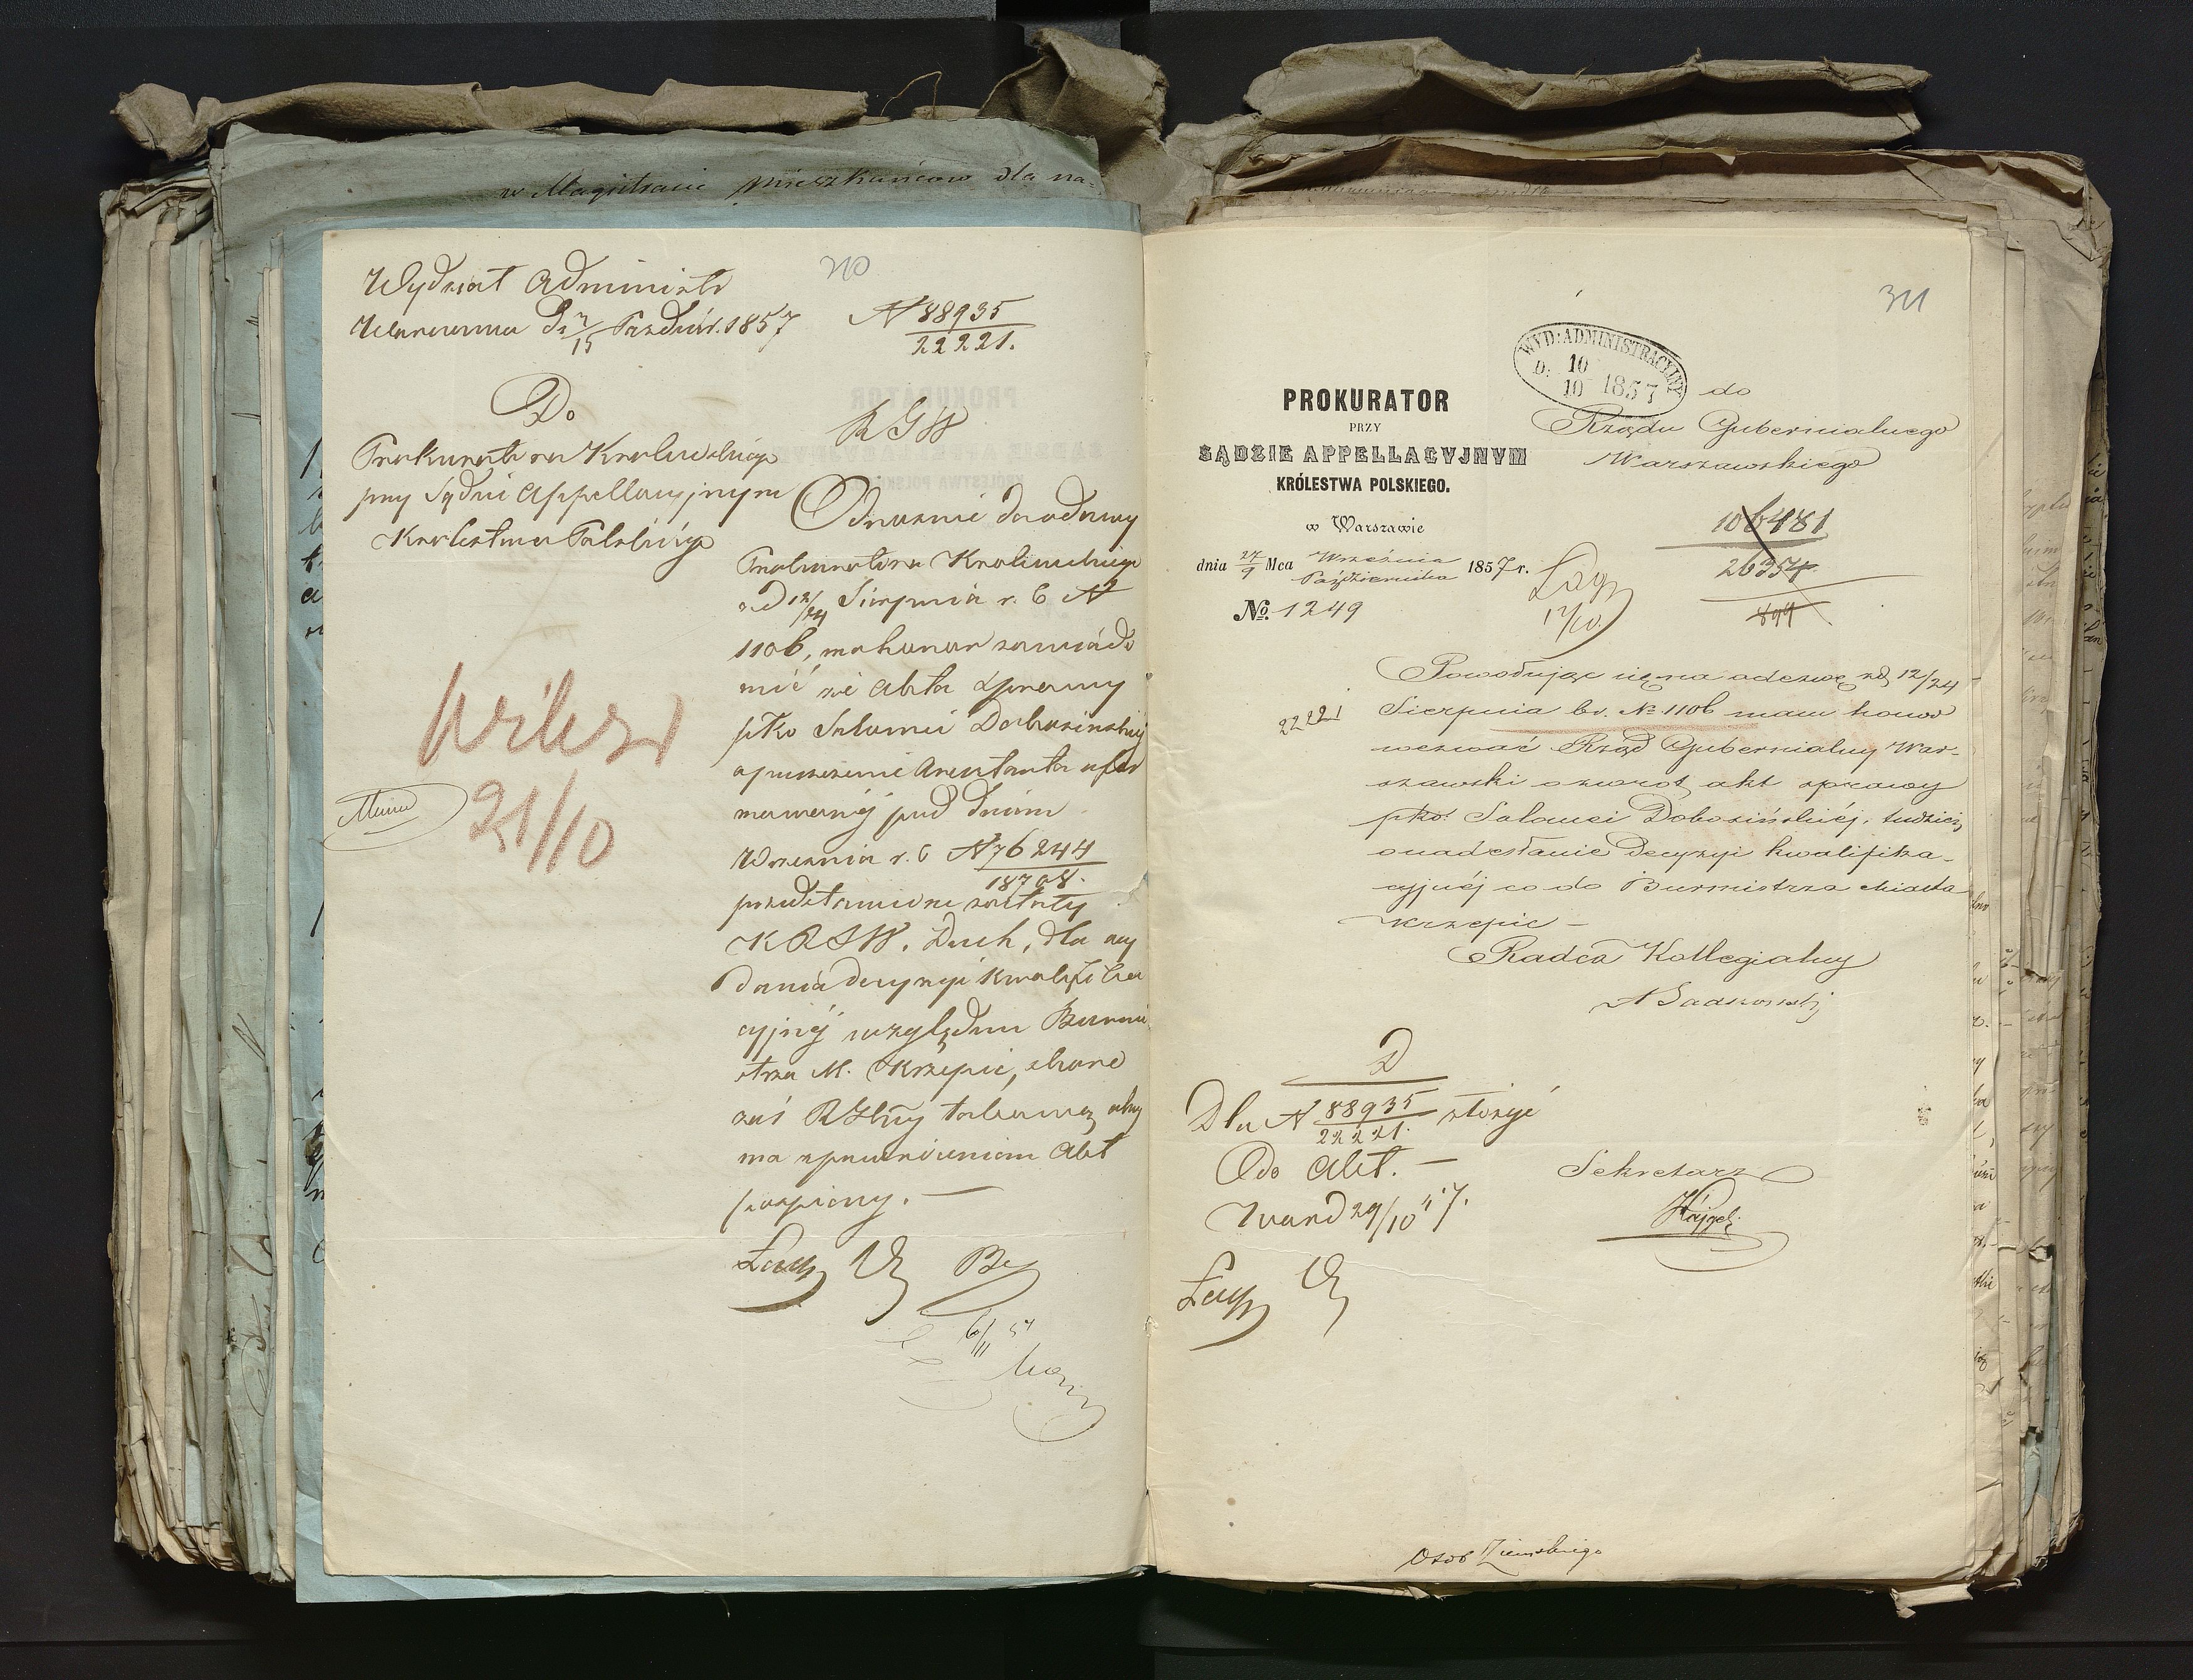 w Magistracie mieszkańców dla na=
Wydział Administr
Warszawa D. 3/15 Paździer. 1857
N 88935
22221.
Do
Prokuratora Królewskiego
przy Sądzie Appellacyjnym
Królestwa Polskiego
RGW
Odnośnie do odezwy
Prokuratora Królewskiego
o D 12/24 Sierpnia r. b N
1106, ma honor zawiado
mić że Akta sprawy
pko Salomei Dobosińskiej
o puszczenie Aresztanta ufor
mowanej pod dniem
Września r. b N 76244
18708.
przedstawione zostały
K R S W. Duch, dla wy
dania decyzyi kwalifika
cyjnej względem Burmi
strza M. Krzepic, skoro
zaś RGbny takową otrzy
ma z powróceniem Akt
pospieszy. —
6/11 57
21/10
311
WYD: ADMINISTRACYJNY
D. 10
10 1857
PROKURATOR
PRZY
SĄDZIE APPELLACYJNYM
KRÓLESTWA POLSKIEGO.
w Warszawie
dnia 27/9 Mca Września
Października 1857 r.
No. 1249
do
Rządu Gubernialnego
Warszawskiego
106481
26354
899
12/10.
Powołując się na odezwę z d. 12/24
22221
Sierpnia br. No 1106 mam honor
wezwać Rząd Gubernialny War-
szawski o zwrot akt sprawy
pko: Salomei Dobosińskiéj, tudzież
o nadesłanie Decyzyi kwalifika-
cyjnéj co do Burmistrza Miasta
Krzepic –
Radca Kollegialny
D
Dla N 88935 złożyć
22221.
Do Akt. —
29/10 57.
Sekretarz